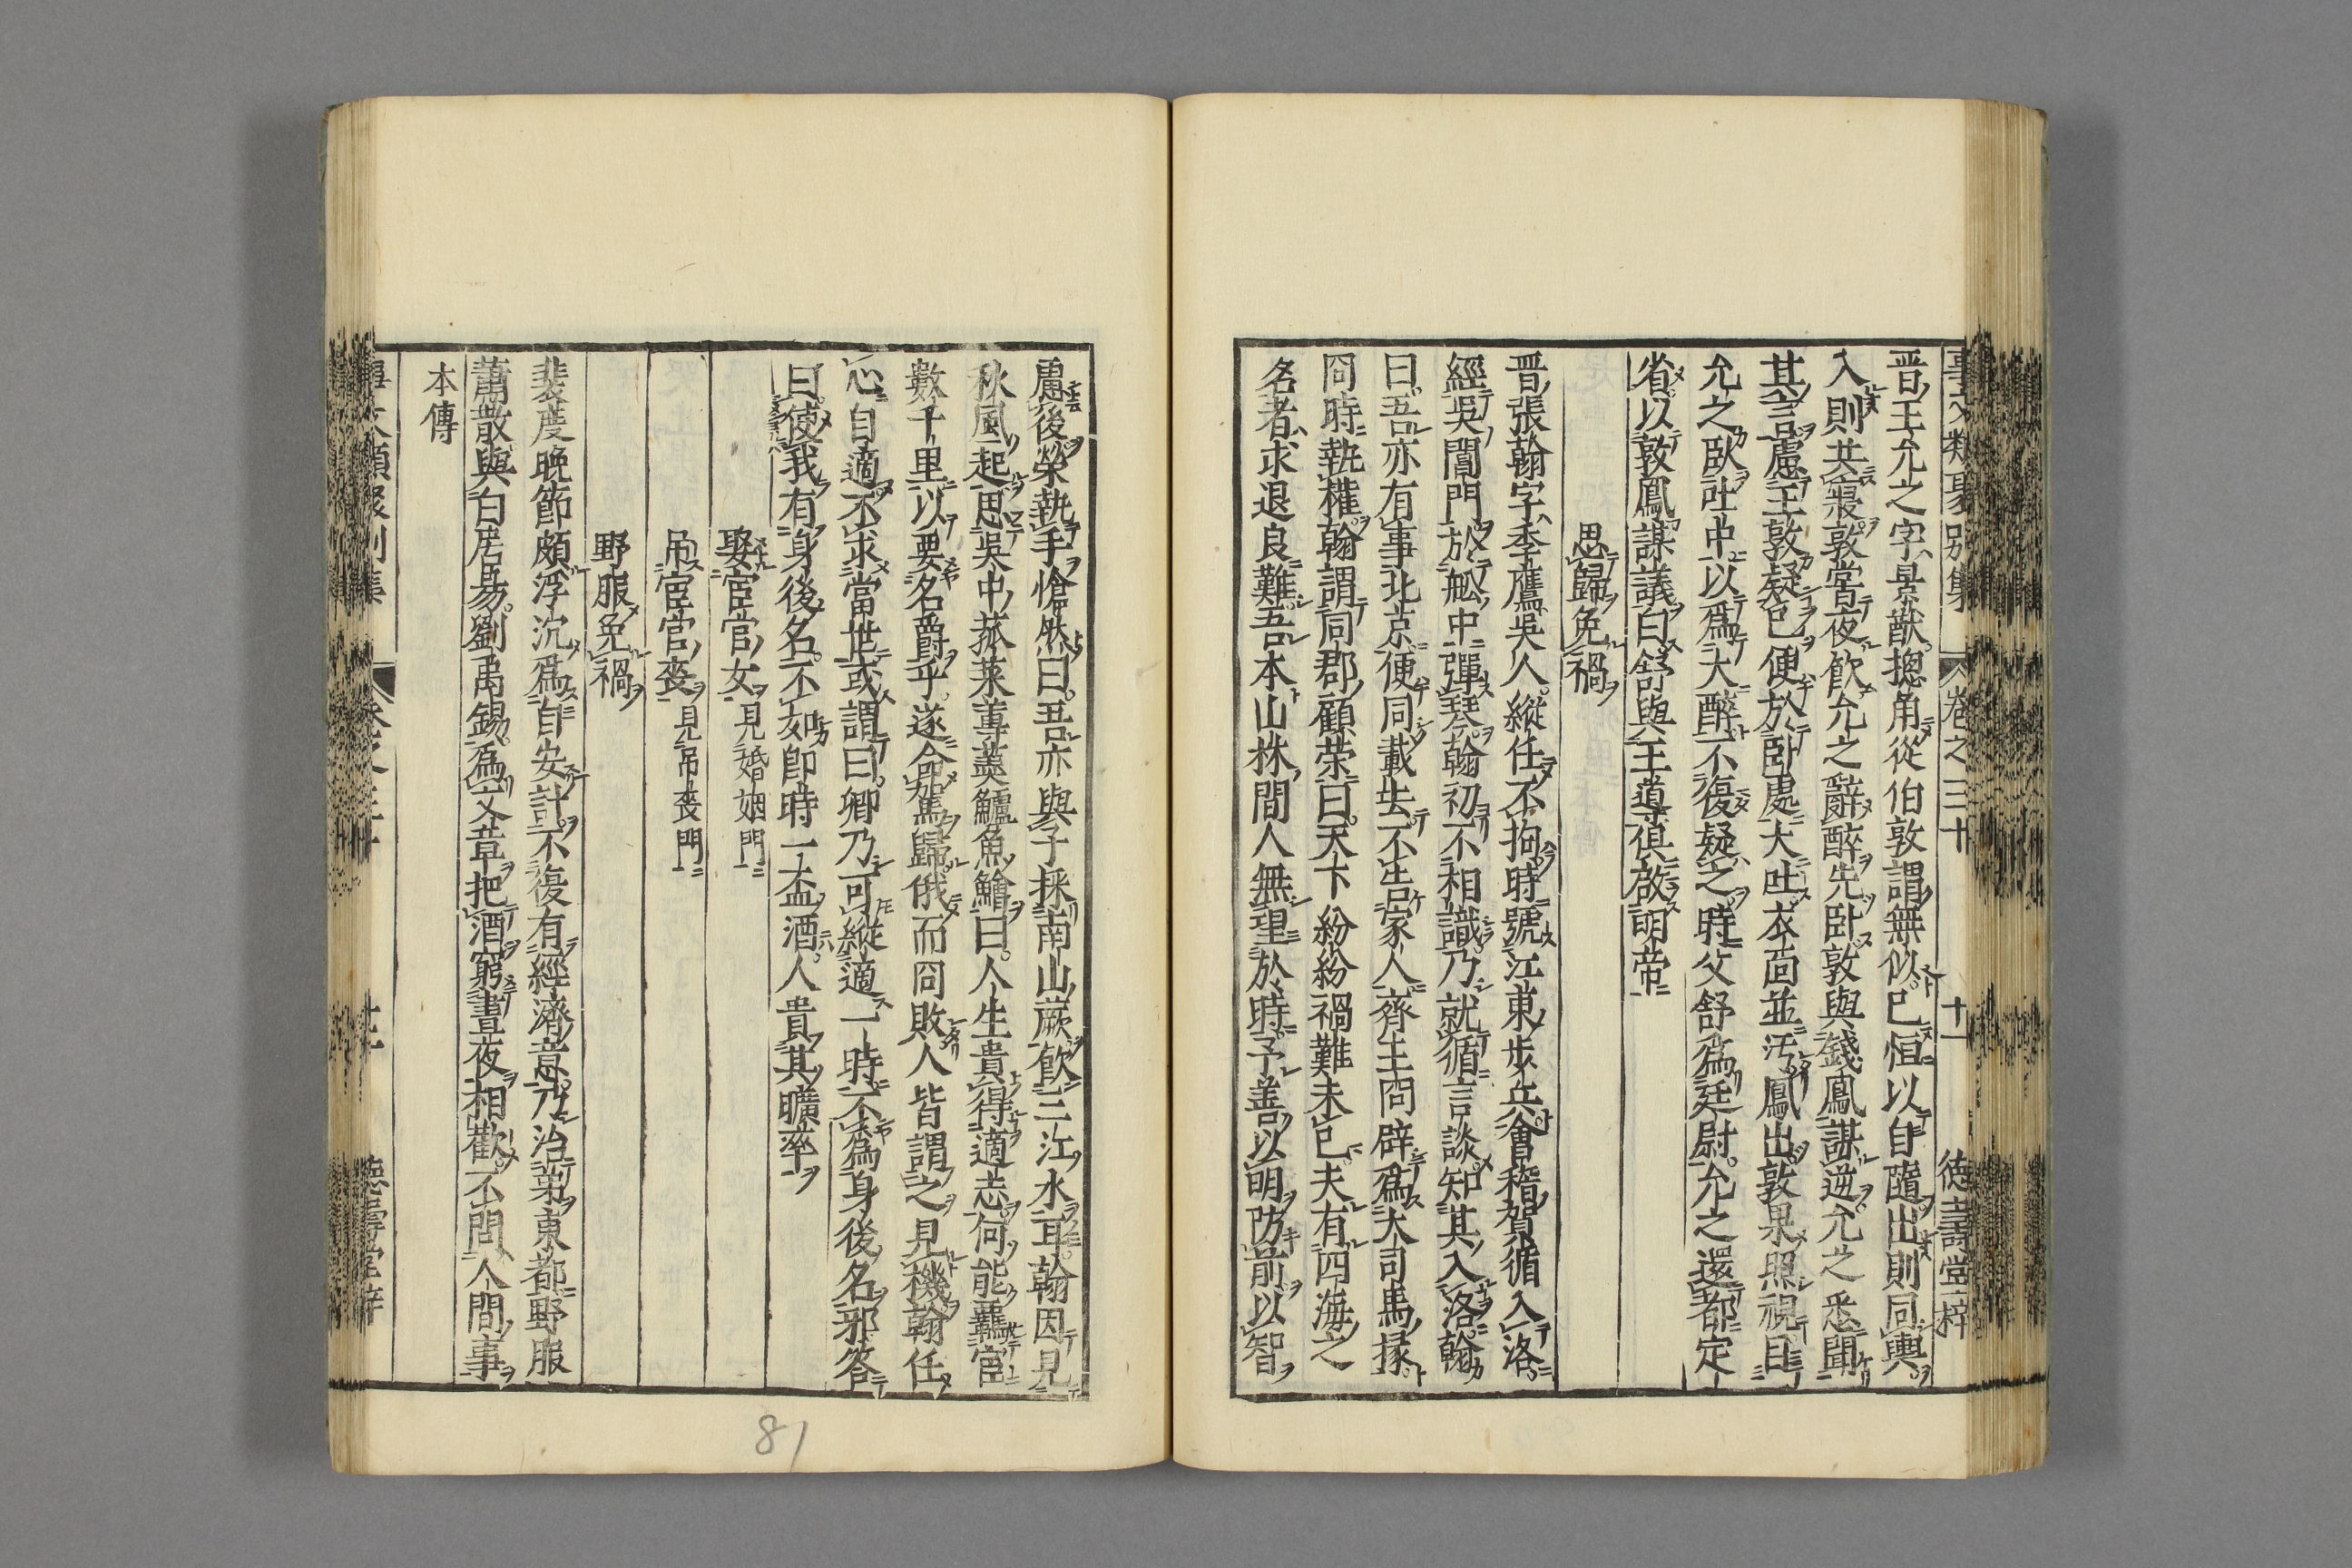 事文類聚別集 卷之三十 十一 德壽堂梓
晋王允之字景猷總角從伯敦謂無似已恒以自隨出則同輿
入則共寢敦嘗夜飲允之辭醉先臥敦與錢鳳謀逆允之悉聞
其言慮王敦疑已便於臥處大吐衣面並汚鳳出敦果照視目
允之臥吐中以爲大醉不復疑之時父舒爲廷尉允之還都定
省以敦鳳謀議白舒與王導俱啟明帝
思歸免禍
晋張翰字季鷹吳人縱任不拘時號江東步兵會稽賀循入洛
經吳閶門於舩中彈琴翰初不相識乃就循言談知其入洛翰
曰吾亦有事北京便同載去不告家人齊王冏辟爲大司馬掾
冏時執權翰謂同郡顧荣曰天下紛紛禍難未已夫有四海之
名者求退良難吾本山林間人無望於時予善以明防前以智
慮後榮執手愴然曰吾亦與子採南山蕨飲三江水耳翰因見
秋風起思吳中菰菜蓴羹鱸魚鱠曰人生貴得適志何能羈宦
數千里以要名爵乎遂命駕歸俄而冏敗人皆謂之見機翰任
心自適不求當世或謂曰卿乃可縱適一時不爲身後名邪答
曰使我有身後名不如卽時一盃酒人貴其曠率
娶宦官女見婚姻門
吊宦官喪見吊喪門
野服免禍
裴度晚節頗浮沉爲自安計不復有經濟意乃治第東都野服
蕭散與白居易劉禹錫爲文章把酒窮晝夜相歡不問人間事
本傳